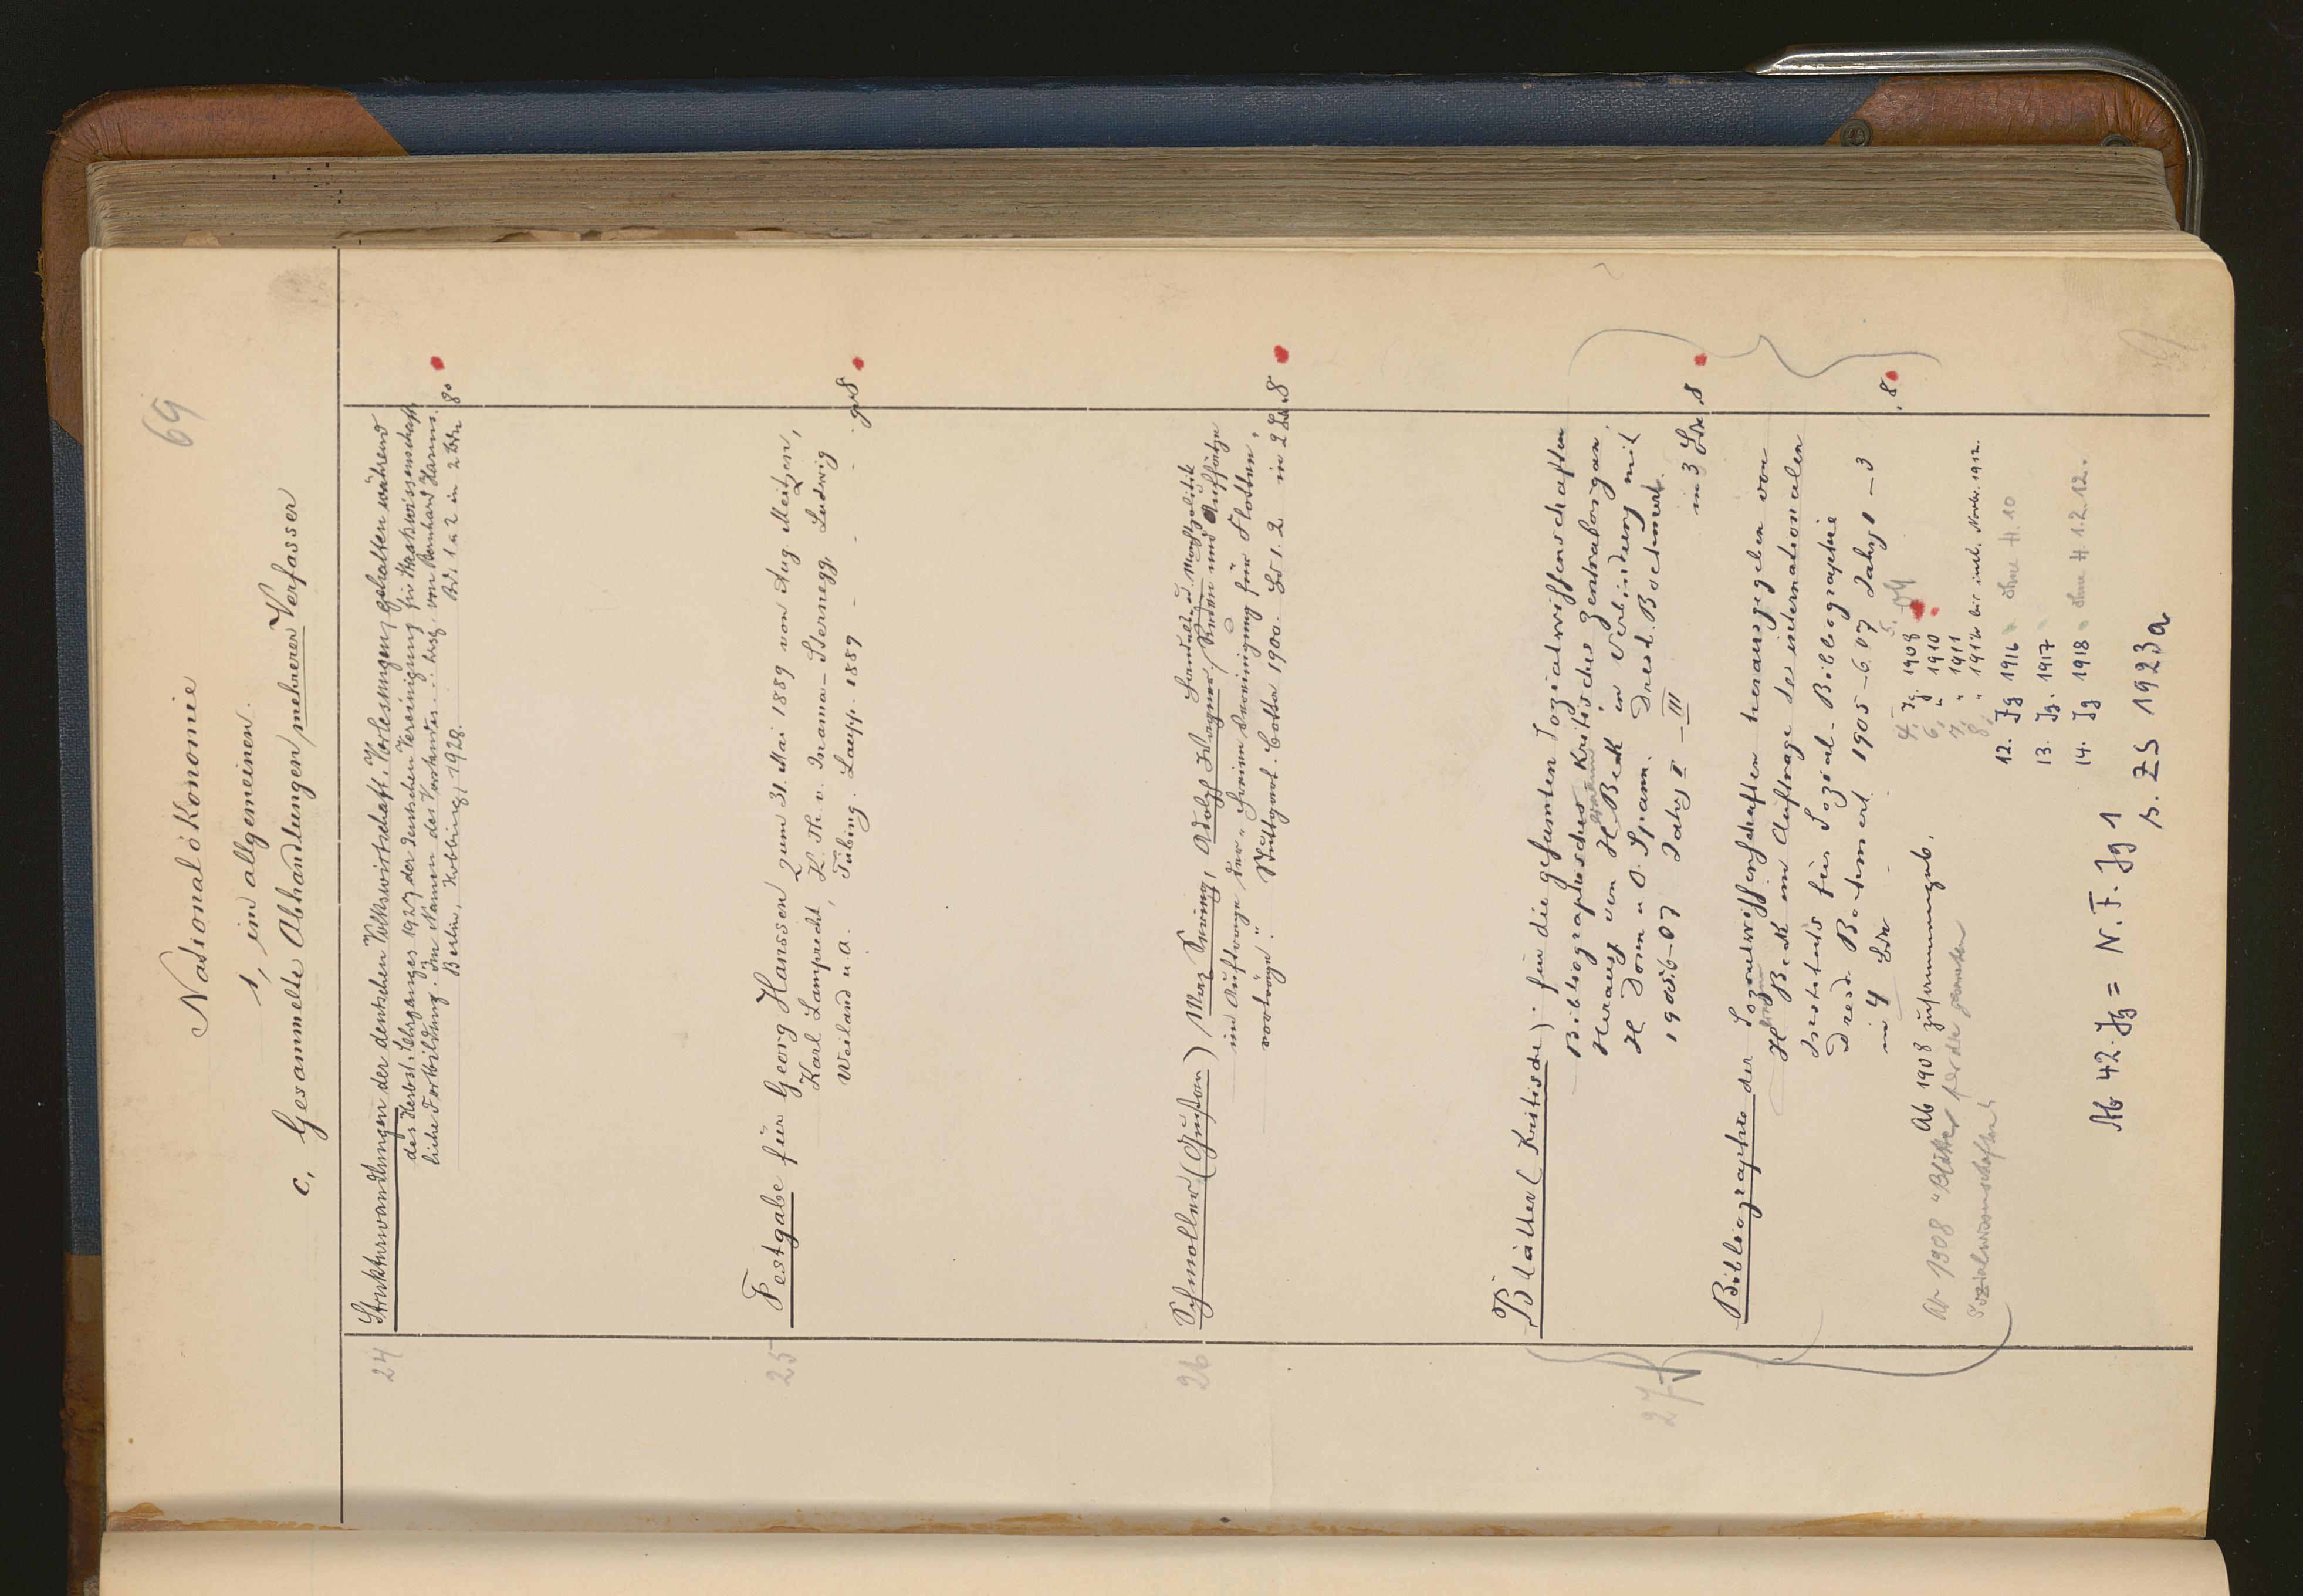 69
Nationalökonomie
1, im allgemeinen.
c, Gesammelte Abhandlungen mehrerer Verfasser
24 Strukturwandlungen der deutschen Volkswirtschaft. Vorlesungen, gehalten während
des Herbst-Lehrganges 1927 der deutschen Vereinigung für staatswissenschaft-
liche Fortbildung. Im Namen des Vorstandes hrsg. von Bernhard Harms.
Berlin, Hobbing, 1928. Bd. 1 u 2 in 2 Bdn 8°
25 Festgabe für Georg Hanssen zum 31. Mai 1889 von Aug. Meitzen,
Karl Lamprecht, K. Th. v. Inama-Sternegg, Ludwig
Weiland u. a. Tübing. Laupp. 1889 - - - gr 8
Handels- u. Machtpolitik
26 Schmoller (Gustav) Max Sering, Adolf Wagner, Reden und Aufsätze
im Auftrage der "Freien Vereinigung für Flotten-
vorträge". Stuttgart. Cotta 1900. Bd 1. 2 in 2 Bde 8
27 Blätter (Kritische) für die gesamten Sozialwissenschaften
Bibliographisches Kritisches Zentralorgan.
Herausg. von H. Beck in Verbindung mit
H. Dorn u. O. Spann. Dresd. Boehmert.
1905.6-07 Jahrg I-III in 3 Bde 8
Bibliographie der Sozialwissenschaften herausgegeben von
H Beck im Auftrage des internationalen
Instituts für Sozial-Bibliographie
Dresd. Boehmert 1905-6.07 Jahrg 1-3
in 4 Bde - 8
4. Jg. 1908
6, " 1910
7, " 1911
8, " 1912 bis incl. Novbr. 1912.
Ab 1908 zusammengeb.
Ab 1908 "Blätter für die gesamten
Sozialwissenschaften"
12. Jg 1916 ohne H. 10
13. Jg. 1917
14. Jg 1918 ohne H. 1.2.12.
Ab 42. Jg = N.F. Jg 1
s. ZS 1923a